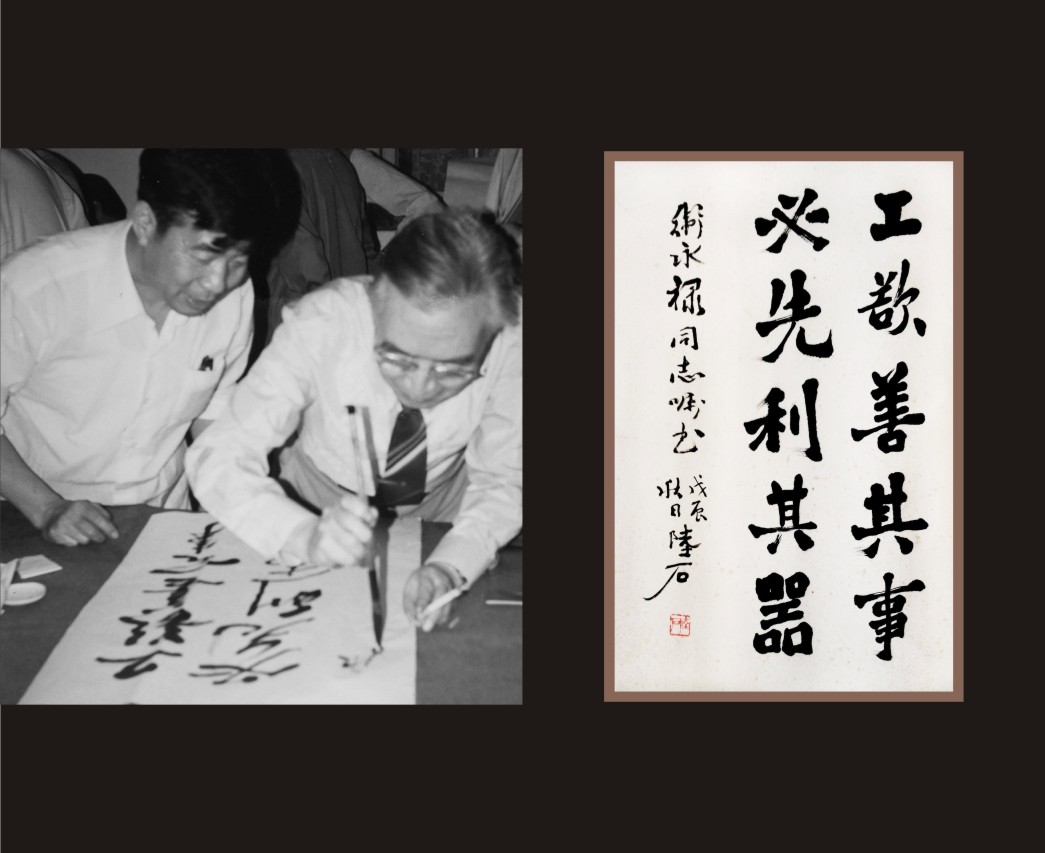 工欲善其事
必先利其器
衛永禄同志嘱书
戊辰
秋日陸石